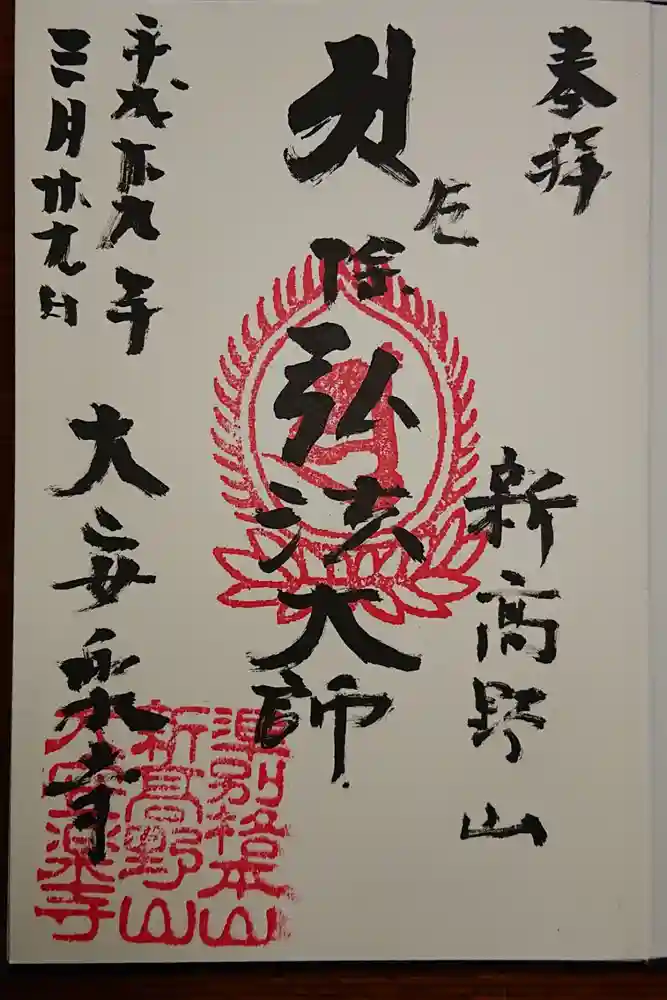 奉拝
新高野山
厄除弘法大師
平成廿九年
三月廿九日
大安楽寺
準別格本山
新高野山
大安楽寺